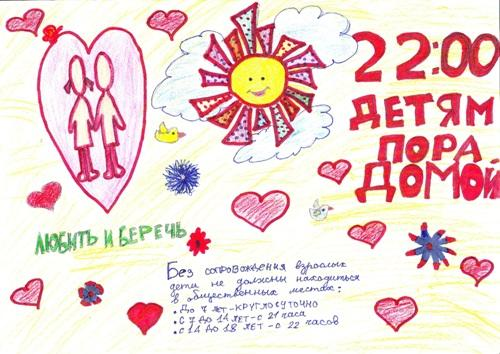 22:00
ДЕТЯМ
ПОРА
ДОМОЙ
ЛЮБИТЬ И БЕРЕЧЬ
Без сопровождения взрослых
дети не должны находиться
в общественных местах:
• До 7 лет-КРУГЛОСУТОЧНО
• С 7 до 14 лет-с 21 часа
• с 14 до 18 лет-с 22 часов